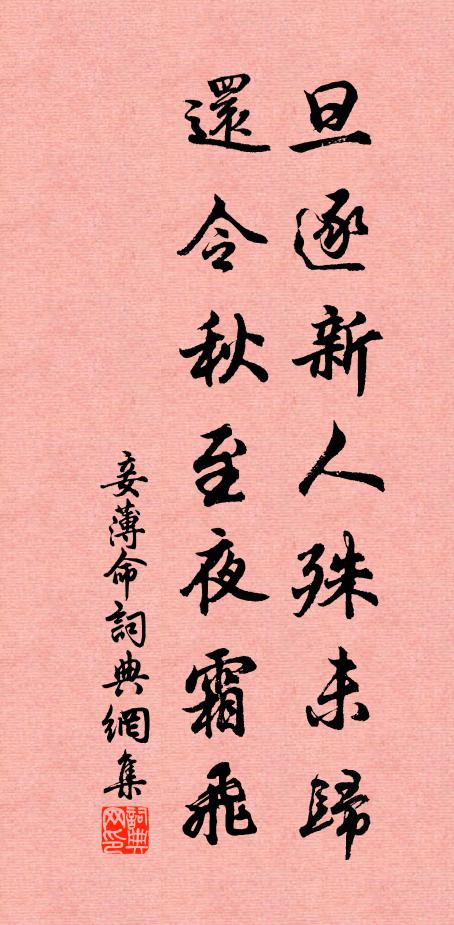 旦逐新人殊未歸
還令秋至夜霜飛
妾薄命詞典網集
詞典网印